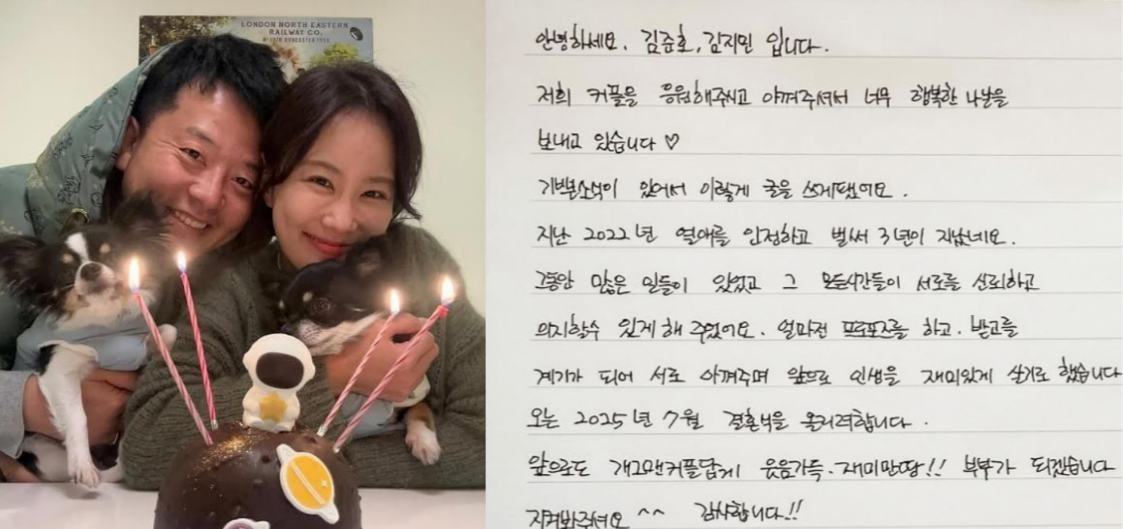 LONDON NORTH EASTERN
RAILWAY CO.
안녕하세요. 김준호, 김지민 입니다.
저희 커플을 응원해주시고 아껴주셔서 너무 행복한 나날을
보내고 있습니다 ♡
기쁜소식이 있어서 이렇게 글을 쓰게됐어요.
지난 2022년 열애를 인정하고 벌써 3년이 지났네요.
그동안 많은 일들이 있었고 그 모든시간들이 서로를 신뢰하고
의지할수 있게 해 주었어요. 얼마전 프로포즈를 하고. 받고를
계기가 되어 서로 아껴주며 앞으로 인생을 재미있게 살기로 했습니다
오는 2025년 7월 결혼식을 올리려합니다.
앞으로도 개그맨커플답게 웃음가득. 재미만땅!! 부부가 되겠습니다
지켜봐주셔요 ^^ 감사합니다!!